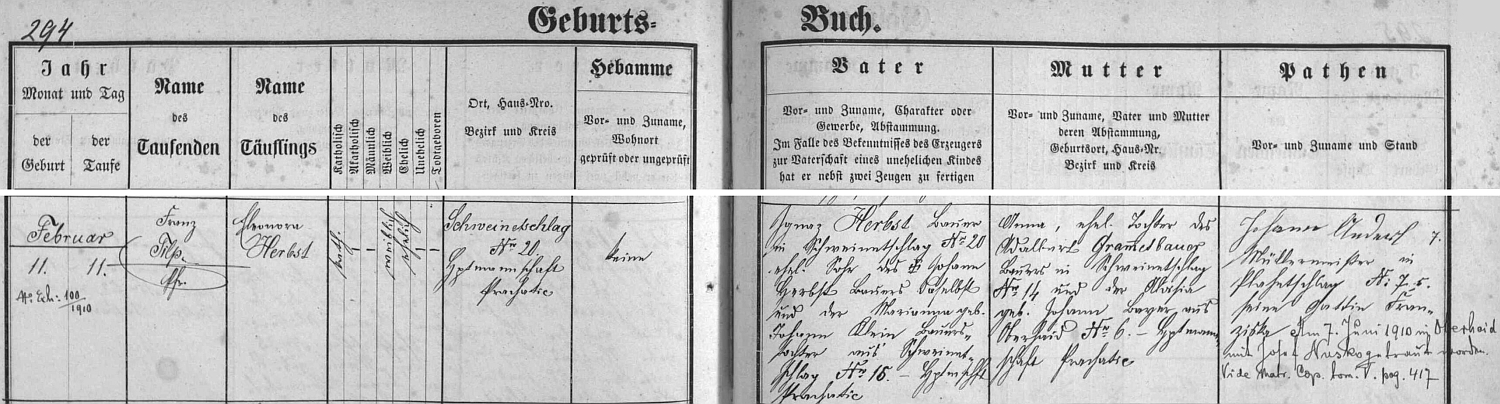 294
Geburts-Buch.
Jahr
Monat und Tag
der Geburt
der Taufe
Name
des
Taufenden
Name
des
Täuflings
Katholisch
Akatholisch
Männlich
Weiblich
Ehelich
Unehelich
Todtgeboren
Ort, Haus-Nro.
Bezirk und Kreis
Hebamme
Vor- und Zuname,
Wohnort
geprüft oder ungeprüft
Vater
Vor- und Zuname, Charakter oder
Gewerbe, Abstammung.
Im Falle des Bekenntnisses des Erzeugers
zur Vaterschaft eines unehelichen Kindes
hat er nebst zwei Zeugen zu fertigen
Mutter
Vor- und Zuname, Vater und Mutter
deren Abstammung,
Geburtsort, Haus-Nr.
Bezirk und Kreis
Pathen
Vor- und Zuname und Stand
Februar
11. 11.
100/1910
Franz
Pfr.
Eleonora
Herbst
kath.
weibl.
ehelich
Schweinetschlag
No 20.
Hptmannschaft
Prachatic
keine
Ignaz Herbst Bauer
in Schweinetschlag No 20
ehel. Sohn des Johann
Herbst Bauers daselbst
und der Marianna geb.
Johann Klein Bauers-
tochter aus Schweinet-
schlag No 15. – Hptmschft
Prachatic
Anna, ehel. Tochter des
Adalbert Gramelbauer
Bauers in Schweinetschlag
No 14 und der
geb. Johann Bayer aus
Oberhaid No 6. – Hptmann-
schaft Prachatic
Johann Andersch
Müllermeister in
Plahetschlag N:
seine Gattin Fran-
ziska Am 7. Juni 1910 in Oberhaid
mit Josef getraut worden.
Vide Matr. Cop. tom. V. pag. 417